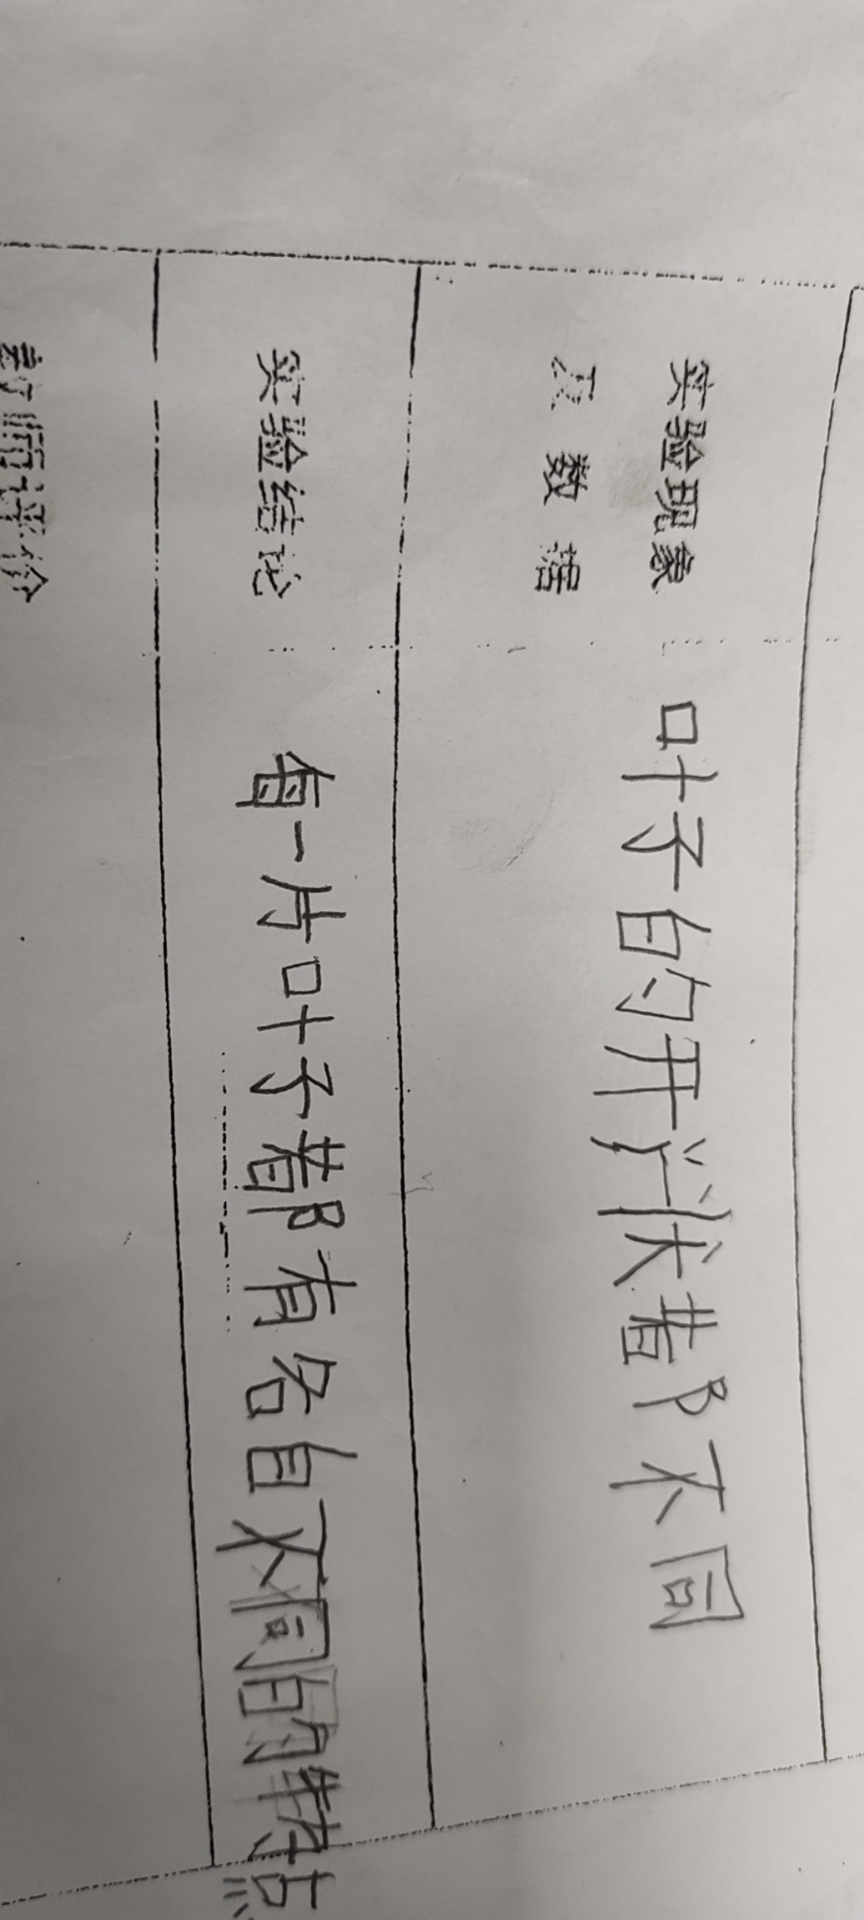 实验现象
叶子的形状都不同
及数据
实验结论
每一片叶子都有各自不同的特点
教师评价